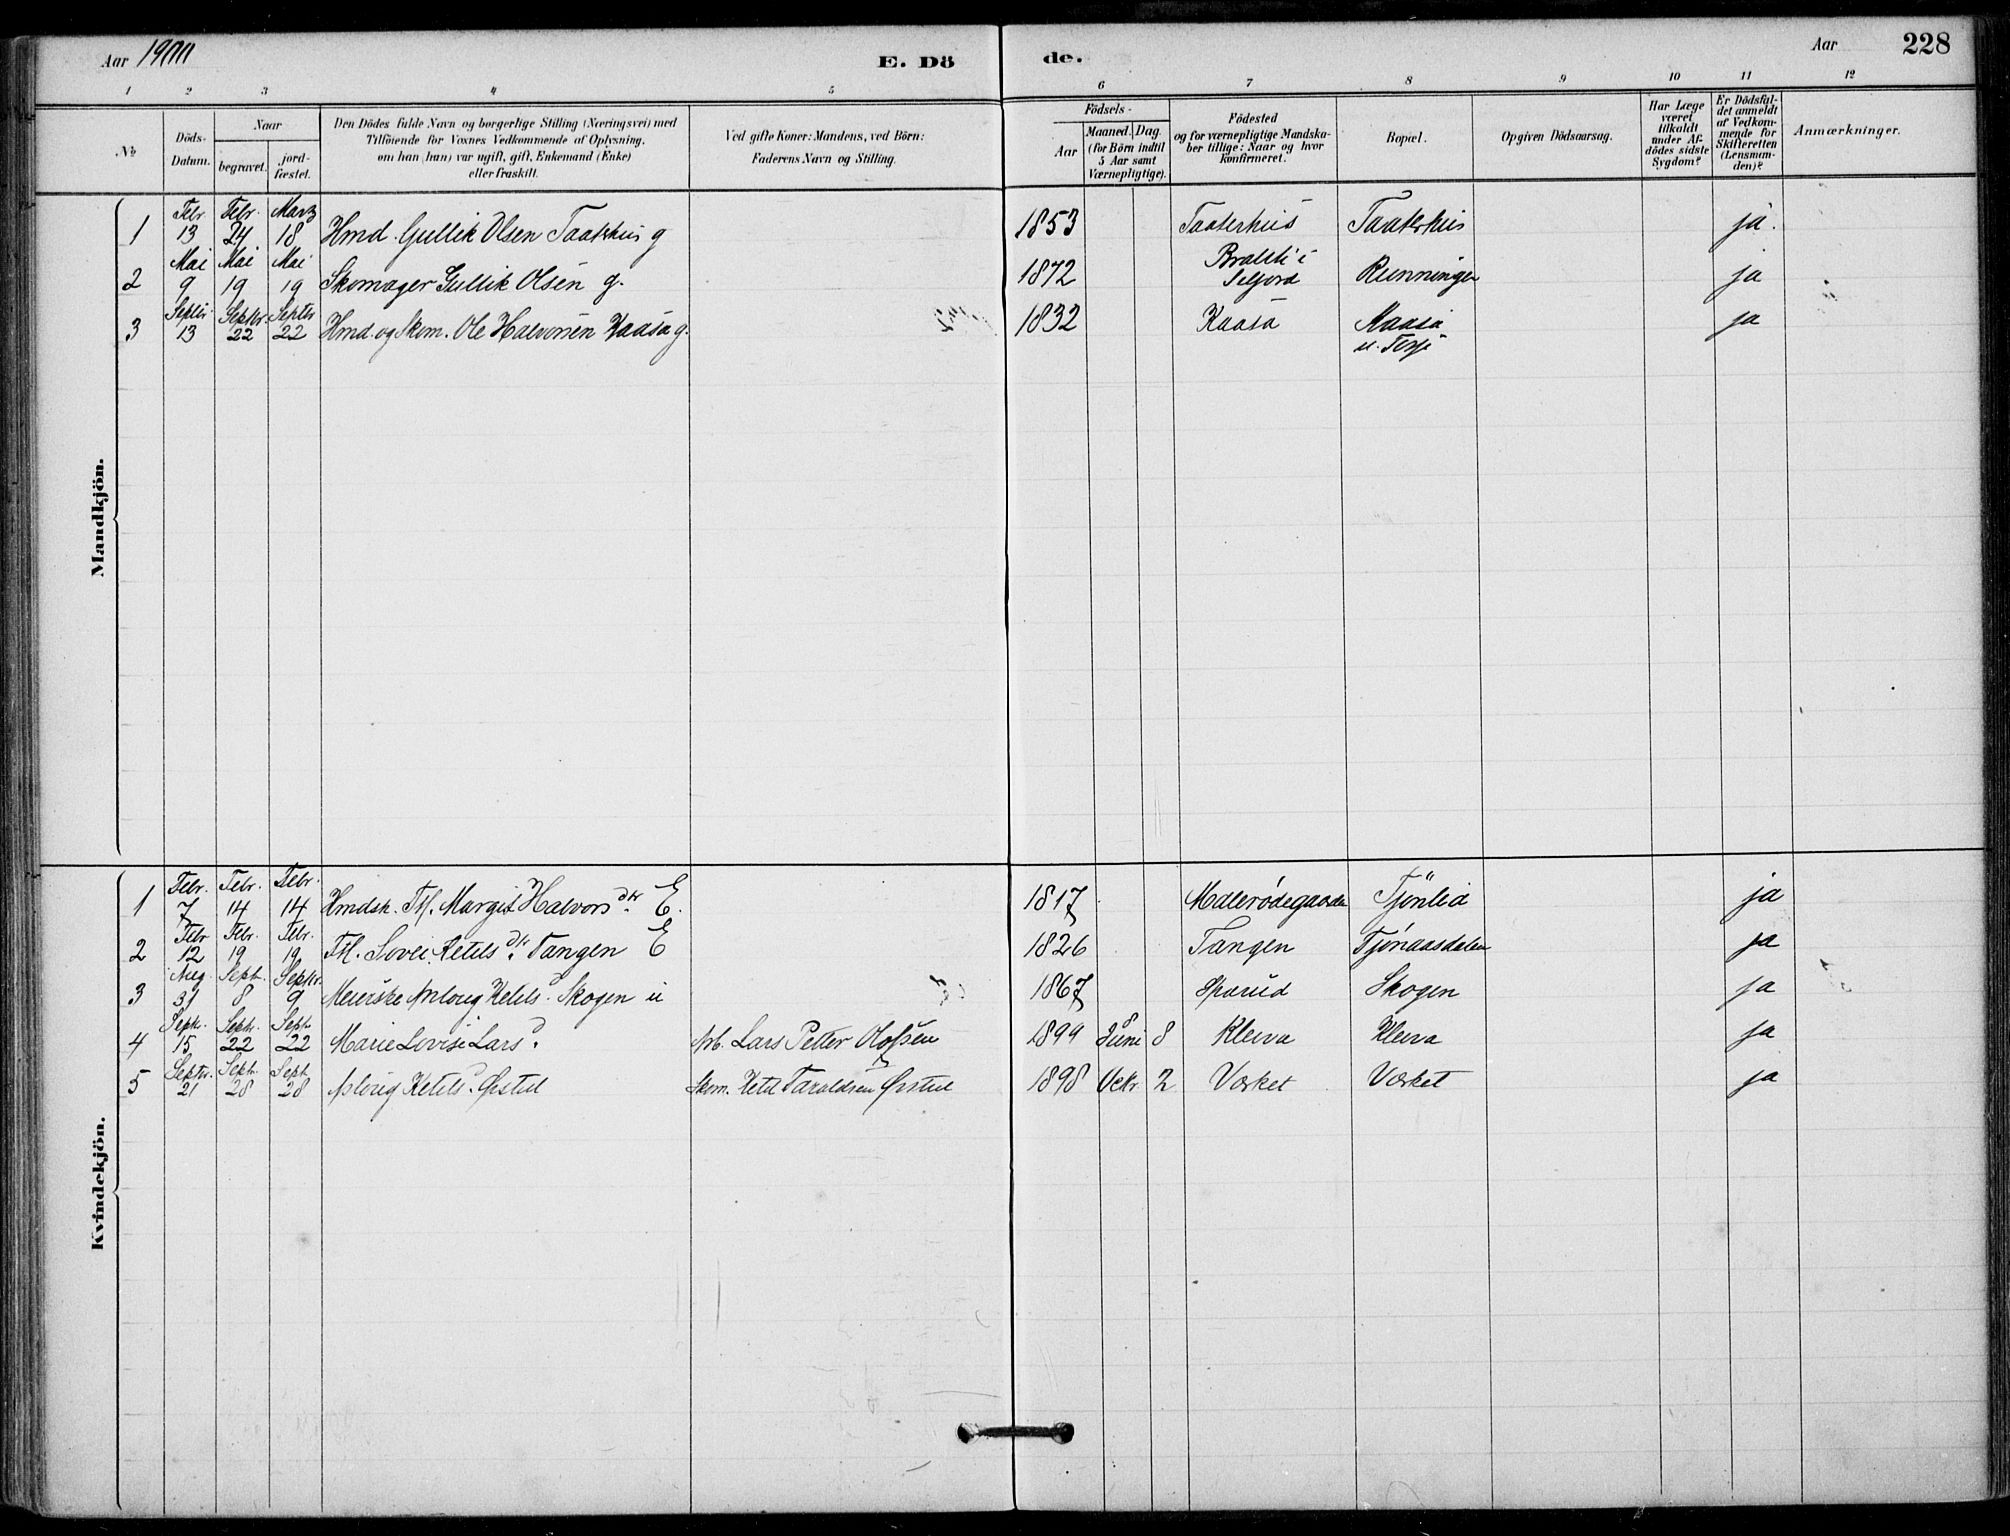 Aar 1900
E. Dö
de.
Aar
228
1 2 3 4 5 6 7 8 9 10 11 12
№
Döds-
Datum.
Naar
begravet.
jord-
fæstet.
Den Dödes fulde Navn og borgerlige Stilling (Næringsvei) med
Tilföiende for Voxnes Vedkommende af Oplysning,
om han (hun) var ugift, gift, Enkemand (Enke)
eller fraskilt.
Ved gifte Koner: Mandens, ved Börn:
Faderens Navn og Stilling.
Födsels-
Aar
Maaned. Dag.
(for Börn indtil
5 Aar samt
Værnepligtige).
Födested
og for værnepligtige Mandska-
ber tillige: Naar og hvor
konfirmeret.
Bopæl.
Opgiven Dödsaarsag.
Har Læge
været
tilkaldt
under Af-
dödes sidste
Sygdom?
Er Dödsfal-
det anmeldt
af Vedkom-
mende for
Skifteretten
(Lensman-
den)?
Anmærkninger.
Mandkjön.
Febr. Febr. Marz
1 13 24 18 Hmd. Gullik Olsen Taaterhus g 1853 Taaterhus Taaterhus ja.
Mai Mai Mai
2 9 19 19 Skomager Gullik Olsen g. 1872
Seljord Runningen ja
Septbr. Septbr. Septbr
3 13 22 22 Hmd. og Skom. Ole Halvorsen Kaasa g. 1832 Kaasa Kaasa ja
Kvindekjön.
Febr. Febr. Febr.
1 7 14 14 Hmdsk. Th. Margit Halvorsdtr. E. 1817 Tjönlid ja
Febr Febr. Febr.
2 12 19 19 Th. Lovei Ketilsdtr. Tangen E 1826 Tangen Tjönaasdalen ja
Aug Sept. Septbr.
3 31 8 9 Meierske Aslaug Ketils d. Skogen u 1867 Sparud Skogen ja
Septr. Septr. Sept
4 15 22 22 Marie Lovise Lars d. Arb. Lars Petter Olofsen 1899 Juni 8 Kleiva Kleiva ja
Septbr. Sept Sept
5 21 28 28 Aslaug Ketils d. Östul Skom. Ketil Taraldsen Östul 1898 Octr. 2 Værket Værket ja